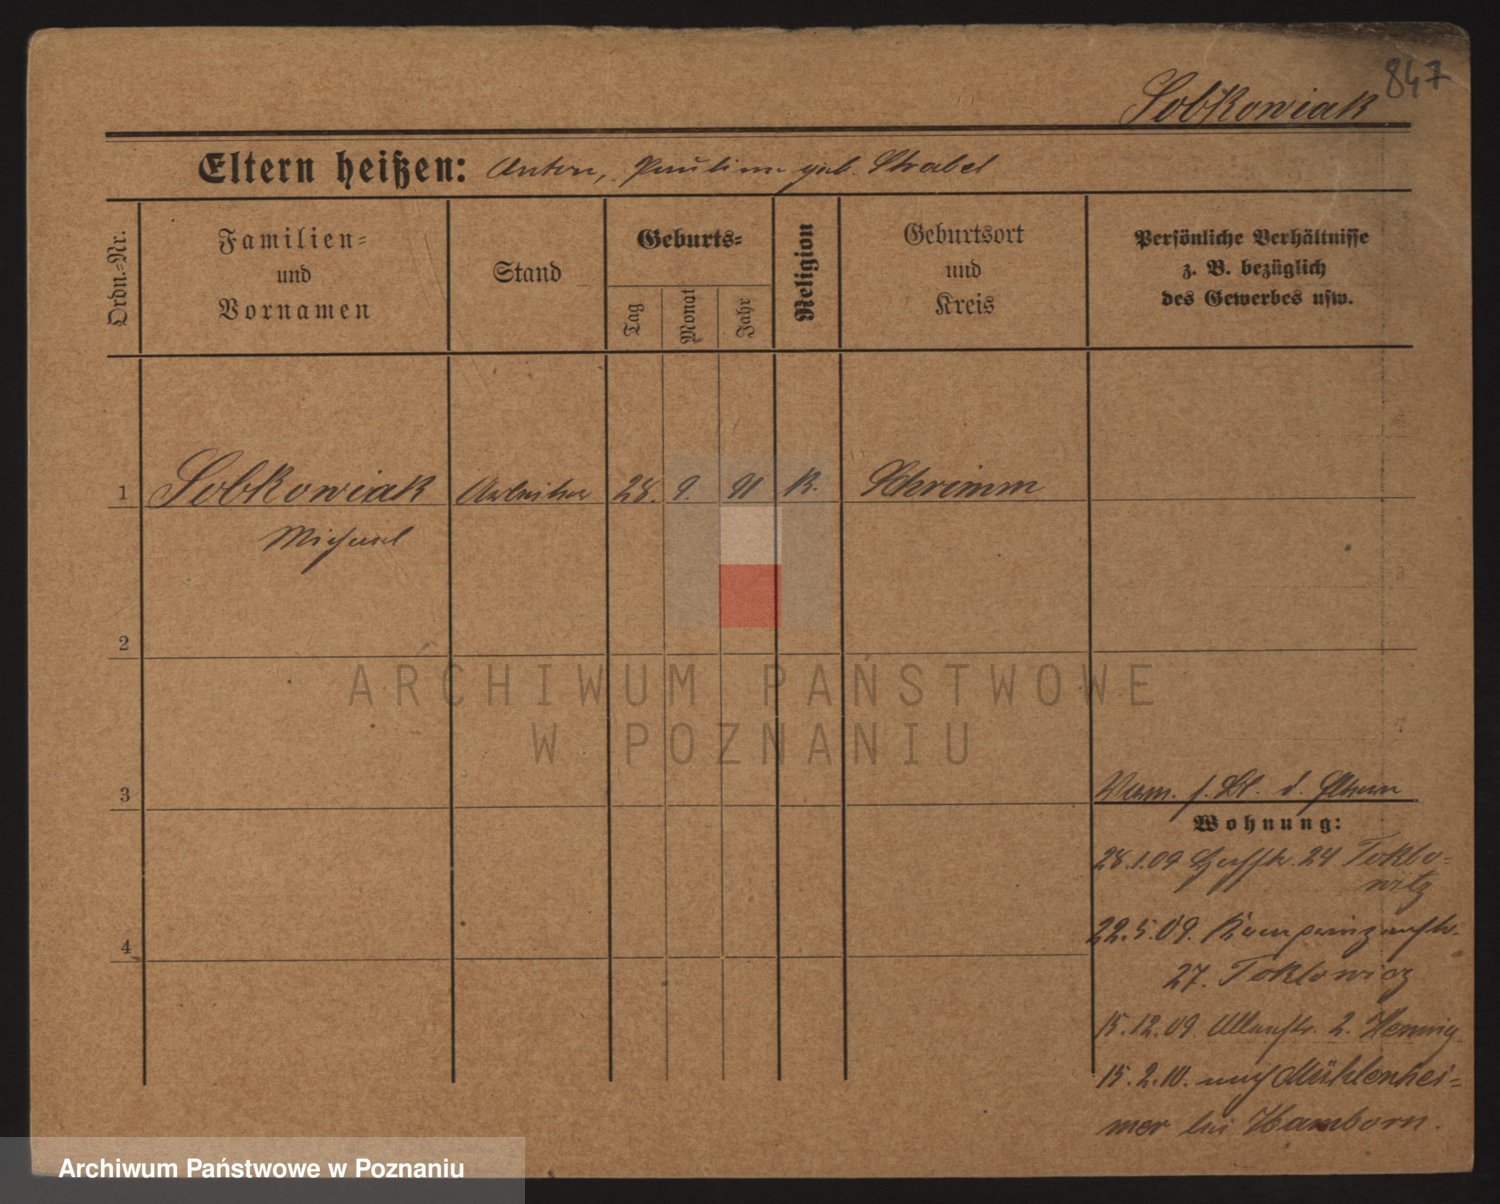 847
Sobkowiak
Eltern heißen: Anton, Paulina geb. Strabel
Ordn.=Nr.
Familien=
und
Vornamen
Stand
Geburts=
Tag
Monat
Jahr
Religion
Geburtsort
und
Kreis
Persönliche Verhältnisse
z. B. bezüglich
des Gewerbes usw.
1 Sobkowiak Arbeiter 28. 9. 91 K. Schrimm
Michael
2
ARCHIWUM PAŃSTWOWE
W POZNANIU
3
Wohnung:
28.1.09 24
22.5.09.
4
27.
15.12.09. 2. Hennig
15.2.10. nach Mühlenhei=
mer bei Hamborn.
Archiwum Państwowe w Poznaniu